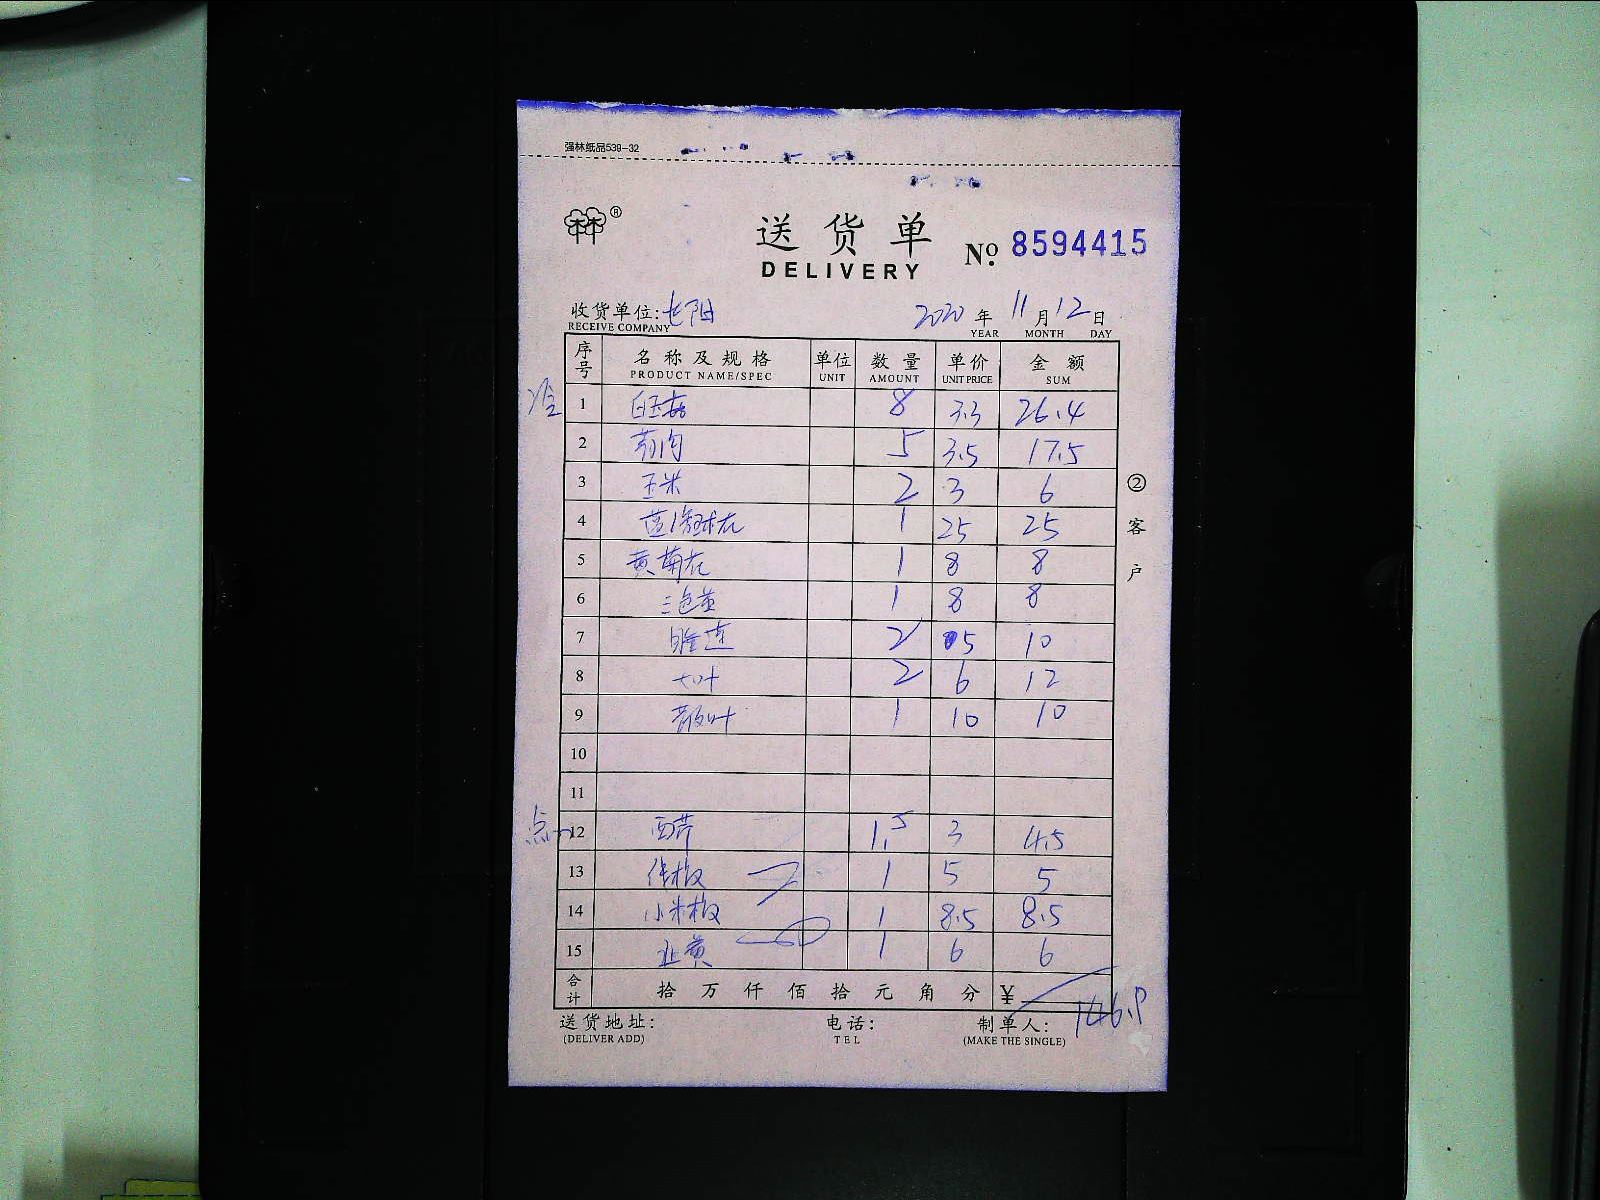 强林纸品539-32
®
送货单 No. 8594415
DELIVERY
收货单位: 长阳 2020年11月12日
RECEIVE COMPANY YEAR MONTH DAY
序号 名称及规格 单位 数量 单价 金额
PRODUCT NAME/SPEC UNIT AMOUNT UNIT PRICE SUM
冷 1 白玉菇 8 3.3 26.4
2 5 3.5 17.5
3 玉米 2 3 6
4 1 25 25
5 黄菊花 1 8 8
6 三色堇 1 8 8
7 睡莲 2 5 10
8 七叶 2 6 12
9 散叶 1 10 10
10
11
点 12 西芹 1.5 3 4.5
13 1 5 5
14 小米椒 1 8.5 8.5
15 韭黄 1 6 6
合计 拾万仟佰拾元角分 ¥ 146.9
送货地址: 电话: 制单人:
(DELIVER ADD) TEL (MAKE THE SINGLE)
②客户